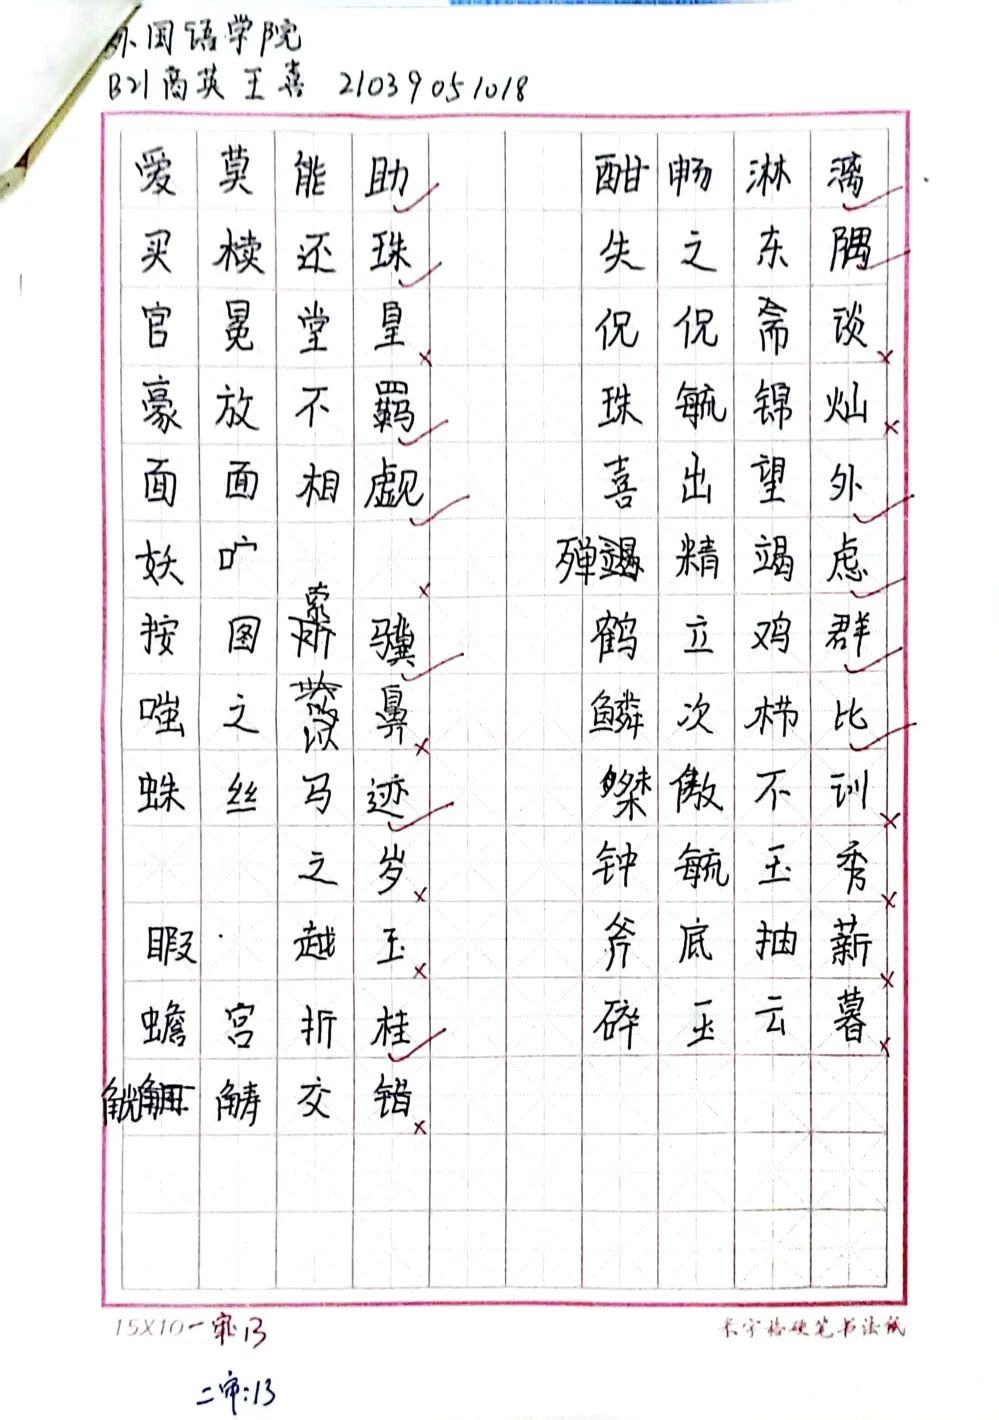 外国语学院
B21商英 王喜 21039051018
爱莫能助 酣畅淋漓
买椟还珠 失之东隅
官冕堂皇 侃侃斋谈
豪放不羁 珠毓锦灿
面面相觑 喜出望外
妖 殚精竭虑
按图索骥 鹤立鸡群
嗤之以鼻 鳞次栉比
蛛丝马迹 傲不训
之岁 钟毓玉秀
暇 越玉 斧底抽薪
蟾宫折桂 碎玉云暮
觥 交错
15X10 一审13 米字格硬笔书法纸
二审:13